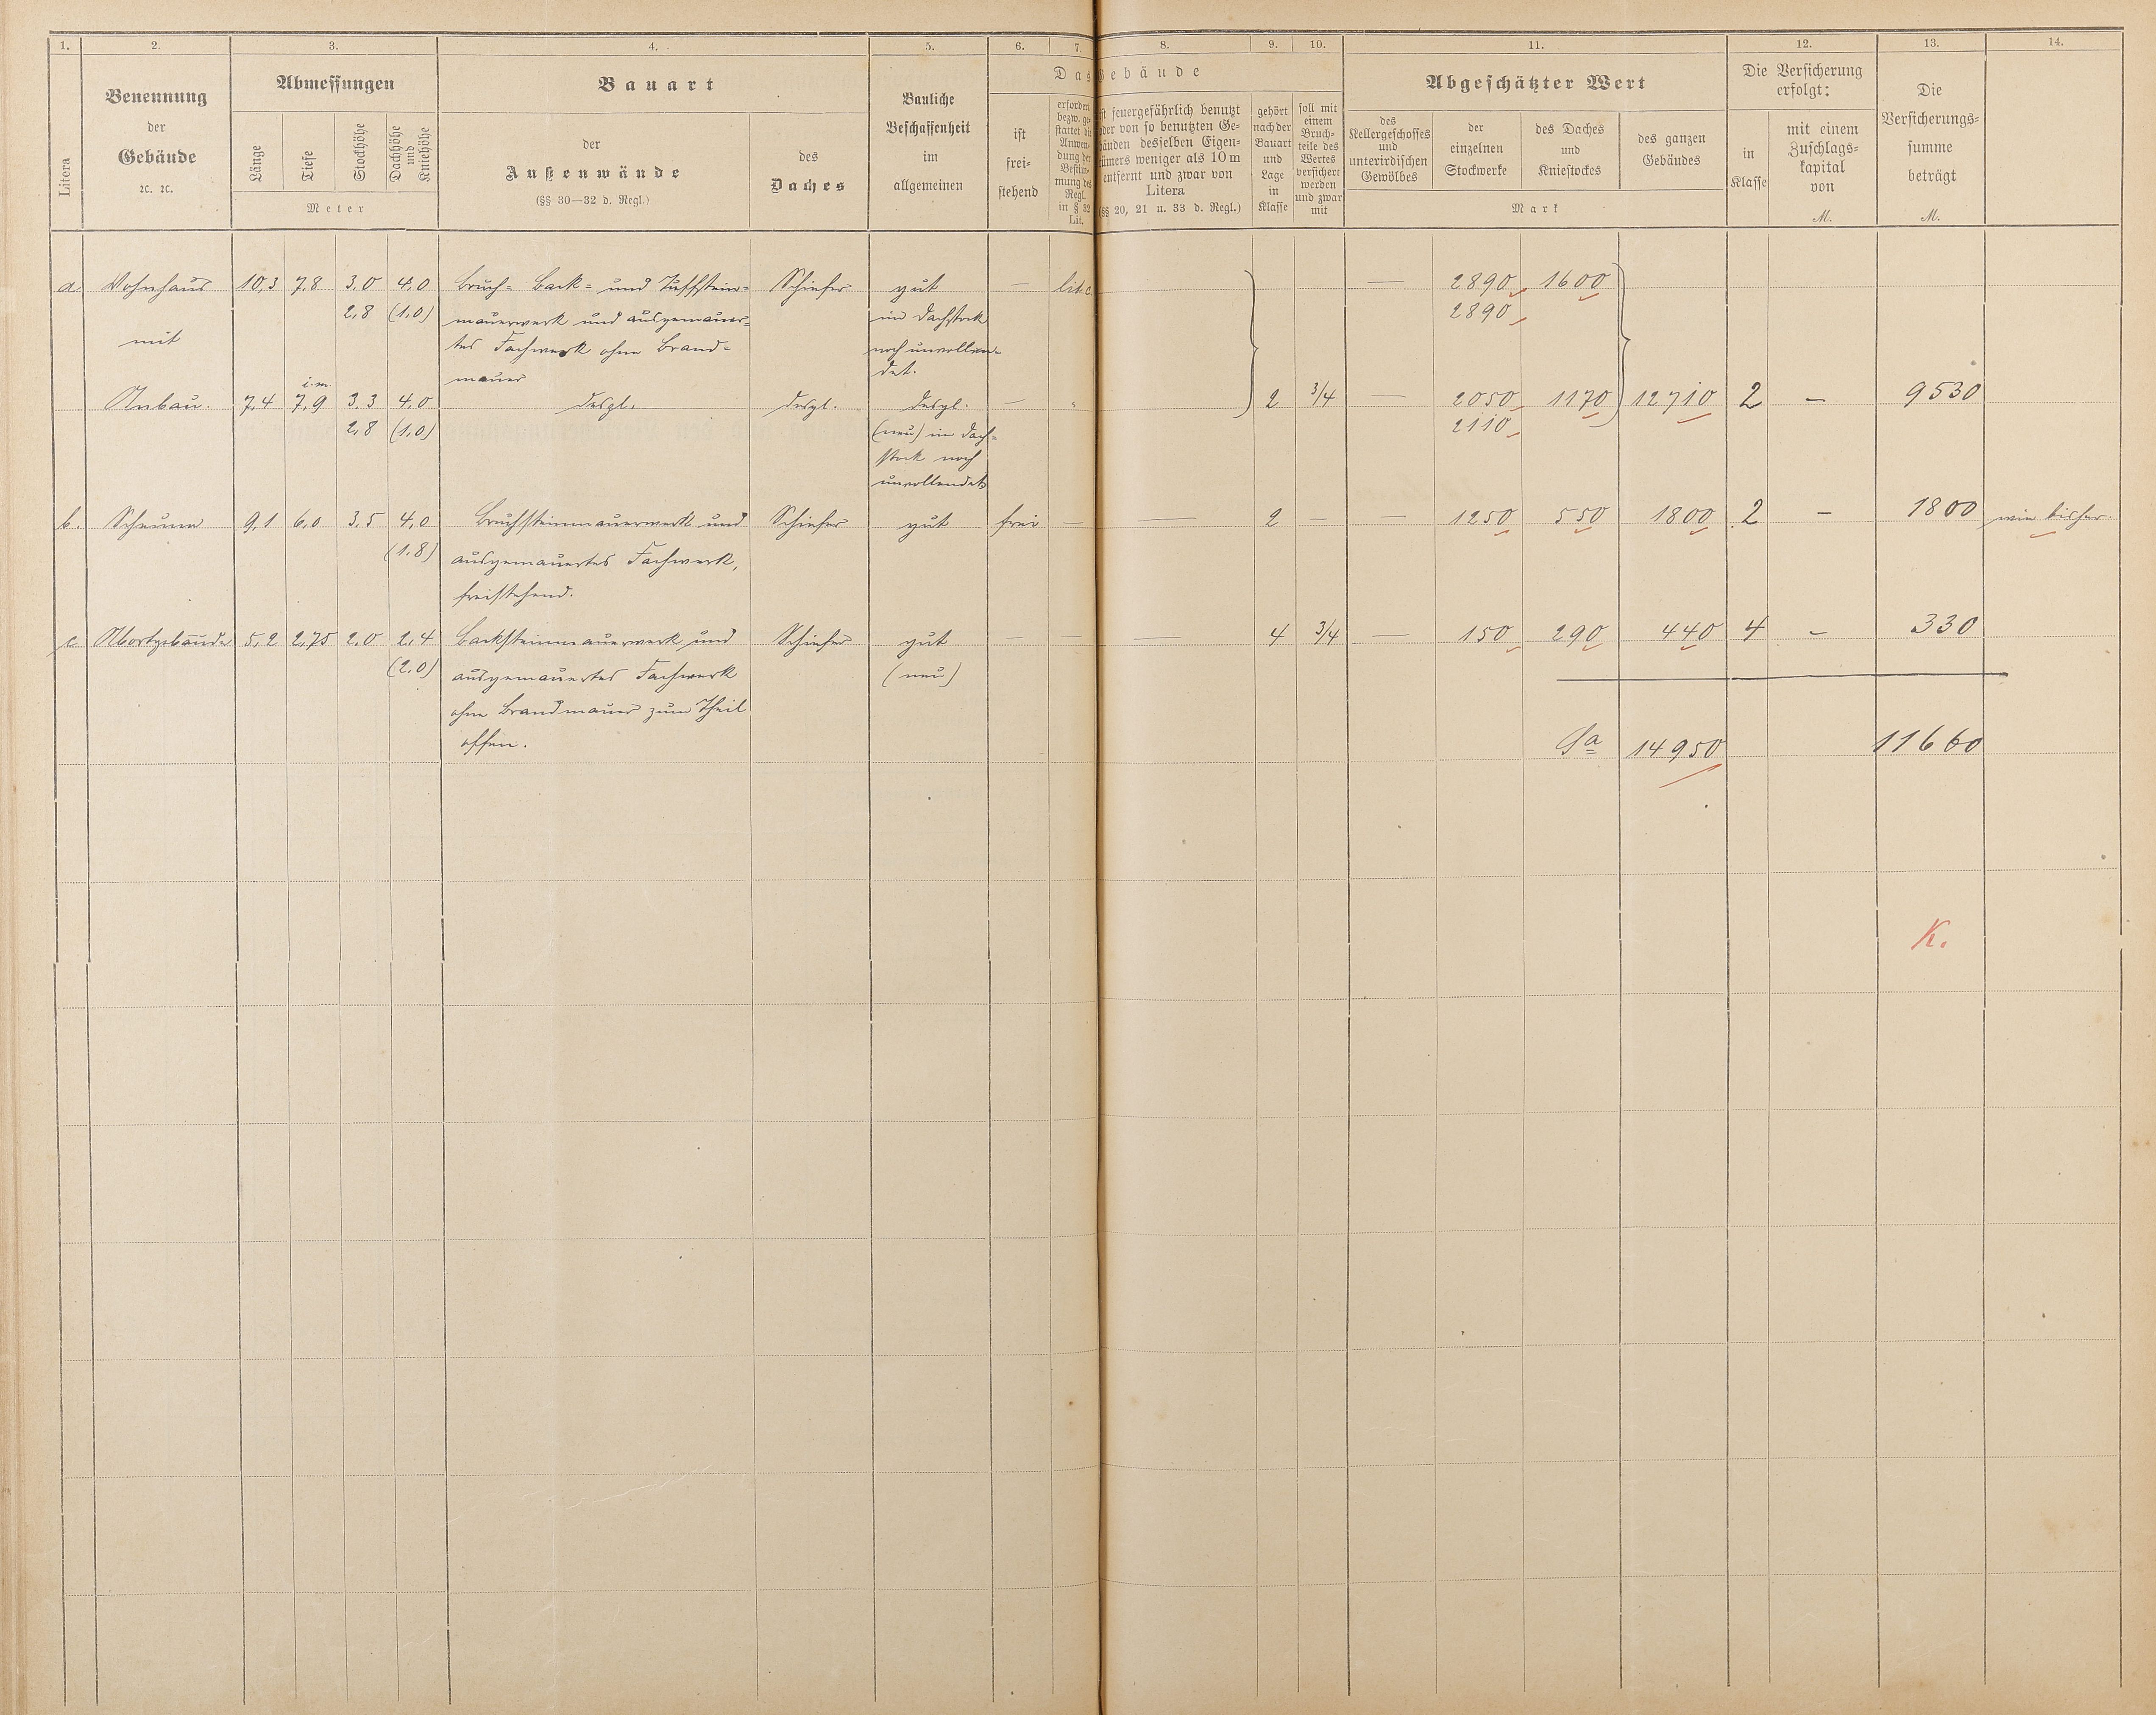 1. 2. 3. 4. 5. 6. 7. 8. 9. 10. 11. 12. 13. 14.
Litera
Benennung
der
Gebäude
ꝛc. ꝛc.
Abmessungen
Länge
Tiefe
Stockhöhe
Dachhöhe
und
Kniehöhe
Meter
Bauart
der
Außenwände
(§§ 30—32 d. Regl.)
des
Daches
Bauliche
Beschaffenheit
im
allgemeinen
Das Gebäude
ist
frei-
stehend
erfordert
bezw. ge-
stattet die
Anwen-
dung der
Bestim-
mung des
Regl.
in § 32
Lit.
ist feuergefährlich benutzt
oder von so benutzten Ge-
bäuden desselben Eigen-
tümers weniger als 10 m
entfernt und zwar von
Litera
(§§ 20, 21 u. 33 d. Regl.)
gehört
nach der
Bauart
und
Lage
in
Klasse
soll mit
einem
Bruch-
teile des
Wertes
versichert
werden
und zwar
mit
Abgeschätzter Wert
des
Kellergeschosses
und
unterirdischen
Gewölbes
der
einzelnen
Stockwerke
des Daches
und
Kniestockes
des ganzen
Gebäudes
Mark
Die Versicherung
erfolgt:
in
Klasse
mit einem
Zuschlags-
kapital
von
M.
Die
Versicherungs-
summe
beträgt
M.
a. Wohnhaus 10,3 7,8 3,0 4,0 Bruch- Back- und Tuffstein- Schiefer gut — lit. c. — 2890 1600
2,8 (1,0) mauerwerk und ausgemauer- im Dachstock 2890
mit tes Fachwerk ohne Brand- noch unvollen-
mauer det.
i. m.
Anbau. 7,4 7,9 3,3 4,0 desgl. desgl. desgl. — " 2 3/4 — 2050 1170 12710 2 — 9530
2,8 (1,0) (neu) im Dach- 2110
stock noch
unvollendet
b. Scheune 9,1 6,0 3,5 4,0 Bruchsteinmauerwerk und Schiefer gut frei — — 2 — — 1250 550 1800 2 — 1800 wie bisher.
(1.8) ausgemauertes Fachwerk,
freistehend.
c Abortgebäude 5,2 2,75 2,0 2,4 Backsteinmauerwerk und Schiefer gut — — — 4 3/4 — 150 290 440 4 — 330
(2,0) ausgemauertes Fachwerk (neu)
ohne Brandmauer zum Theil
offen.
Sa 14950 11660
K.